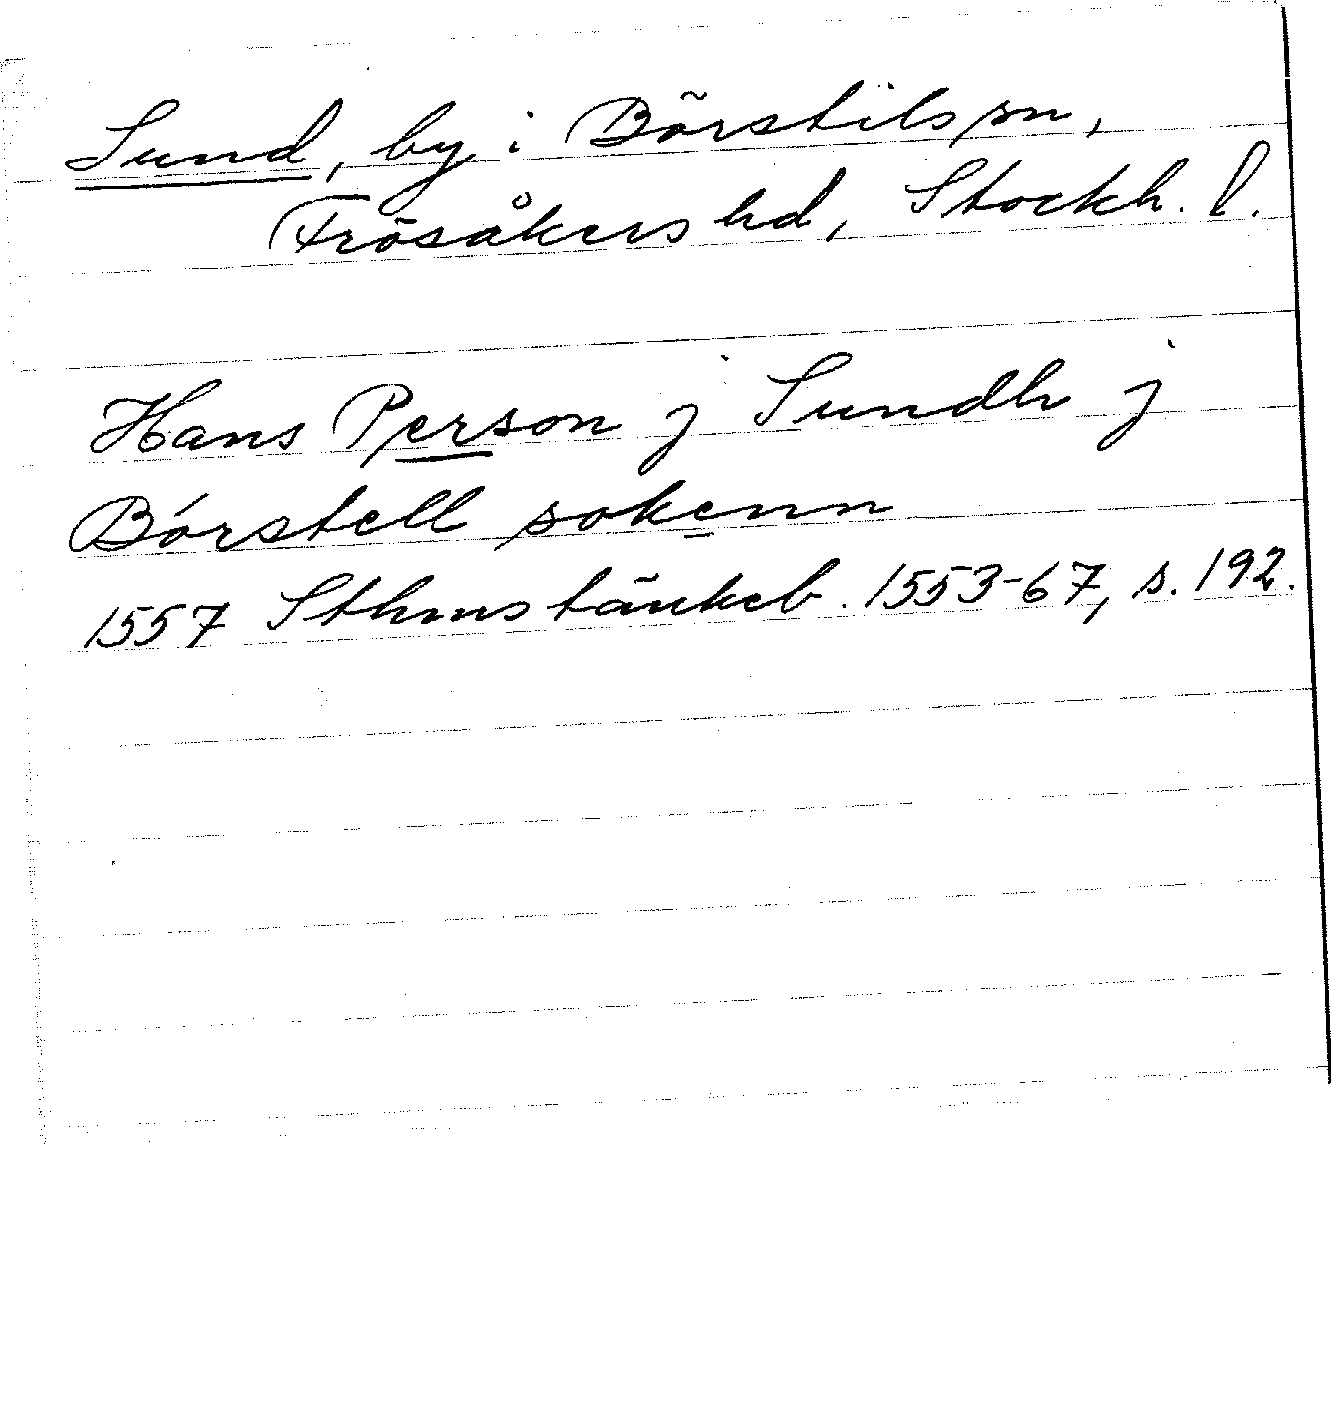 Sund, by i Börstils sn,
Frösåkers hd, Stockh. l.
Hans Person j Sundh j
Bórstell sokenn
1557 Sthms tänkeb. 1553-67, s. 192.